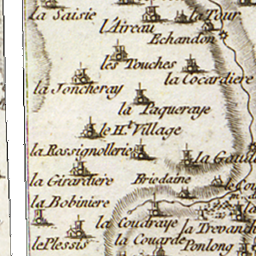 La Saisie
la Tour
l'Aireau
Echandon
les Touches
la Cocardiere
la Joncheray
la Paqueraye
le H.t Village
la Rossignollerie
la Gau
la Girardière
Briedaine
la Bobiniere
la Coudraye
la Trevanch
le Plessis
la Couarde
Ponlong